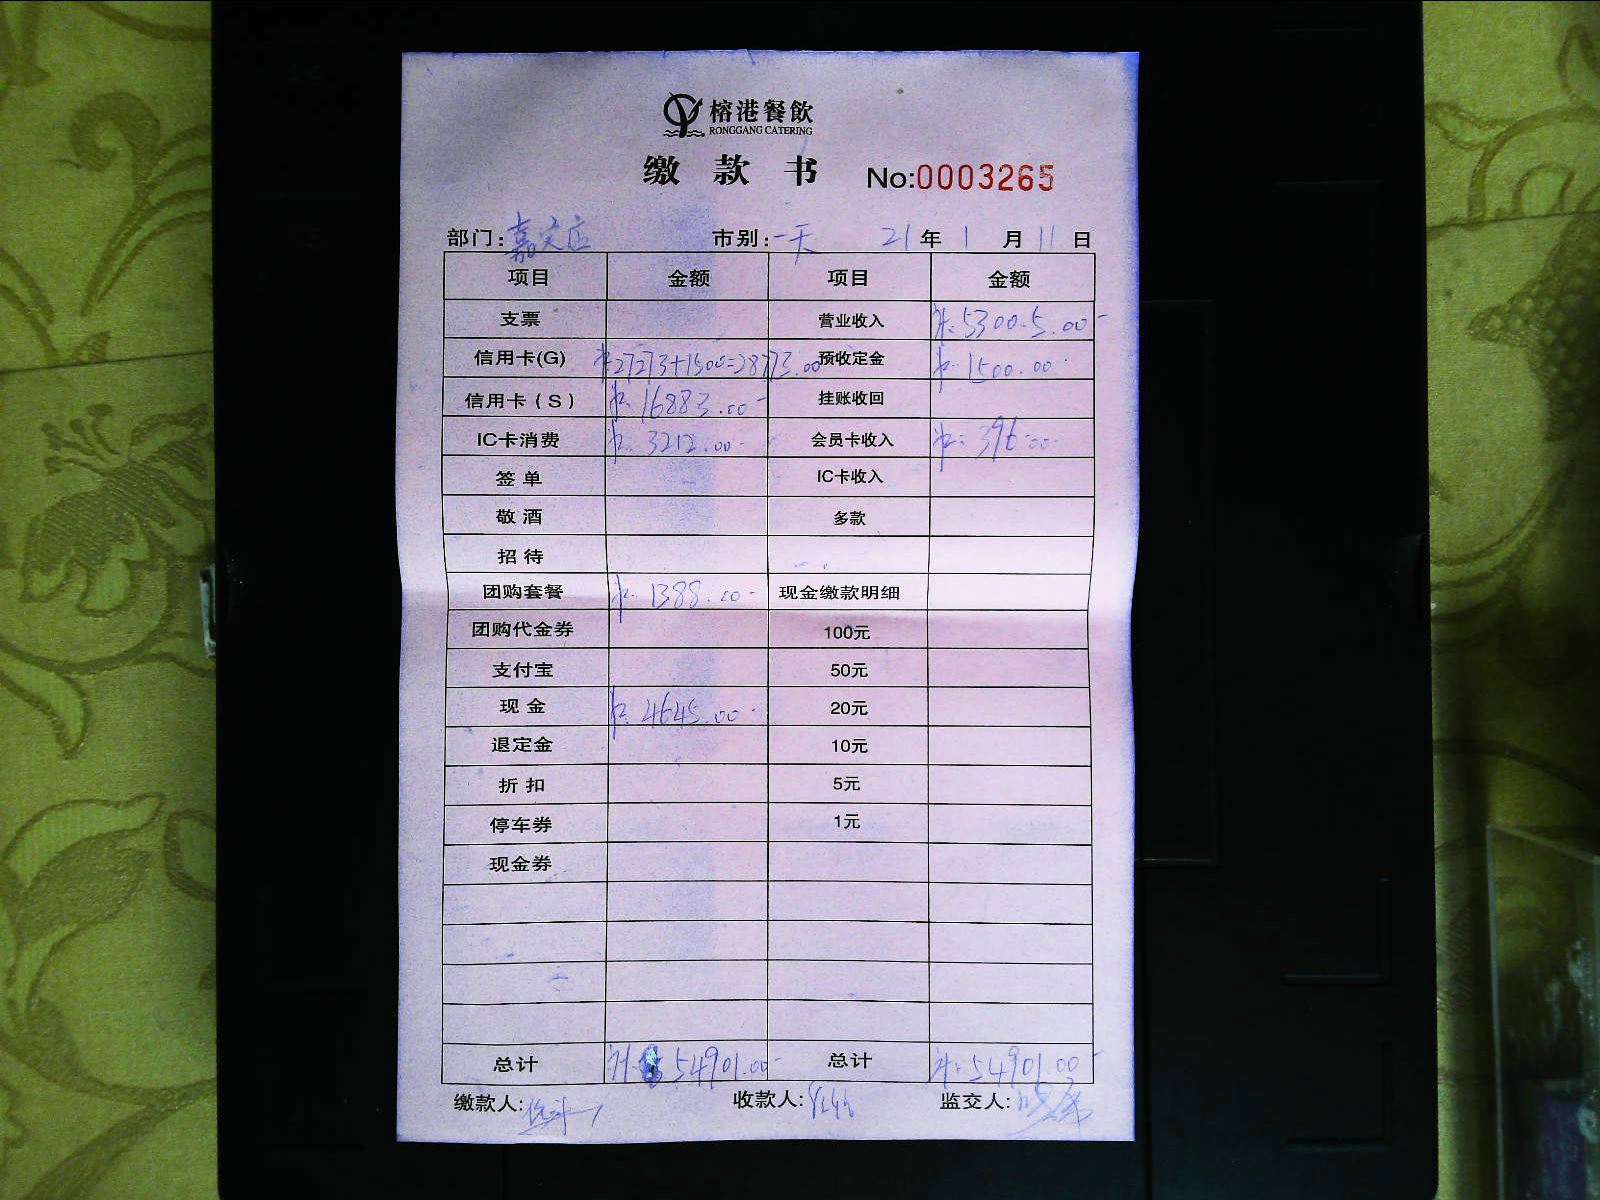 榕港餐飲
RONGGANG CATERING
缴款书 No:0003265
部门:嘉定店 市别:一天 21年1月11日
项目 金额 项目 金额
支票 营业收入 ¥:53005.00-
信用卡(G) ¥27273+1500=28773.00 预收定金 ¥:1500.00-
信用卡(S) ¥:16883.00- 挂账收回
IC卡消费 ¥:3212.00- 会员卡收入 ¥:396.00-
签单 IC卡收入
敬酒 多款
招待
团购套餐 ¥:1388.00- 现金缴款明细
团购代金券 100元
支付宝 50元
现金 ¥:4645.00- 20元
退定金 10元
折扣 5元
停车券 1元
现金券
总计 ¥:54901.00- 总计 ¥:54901.00-
缴款人: 收款人: 监交人: